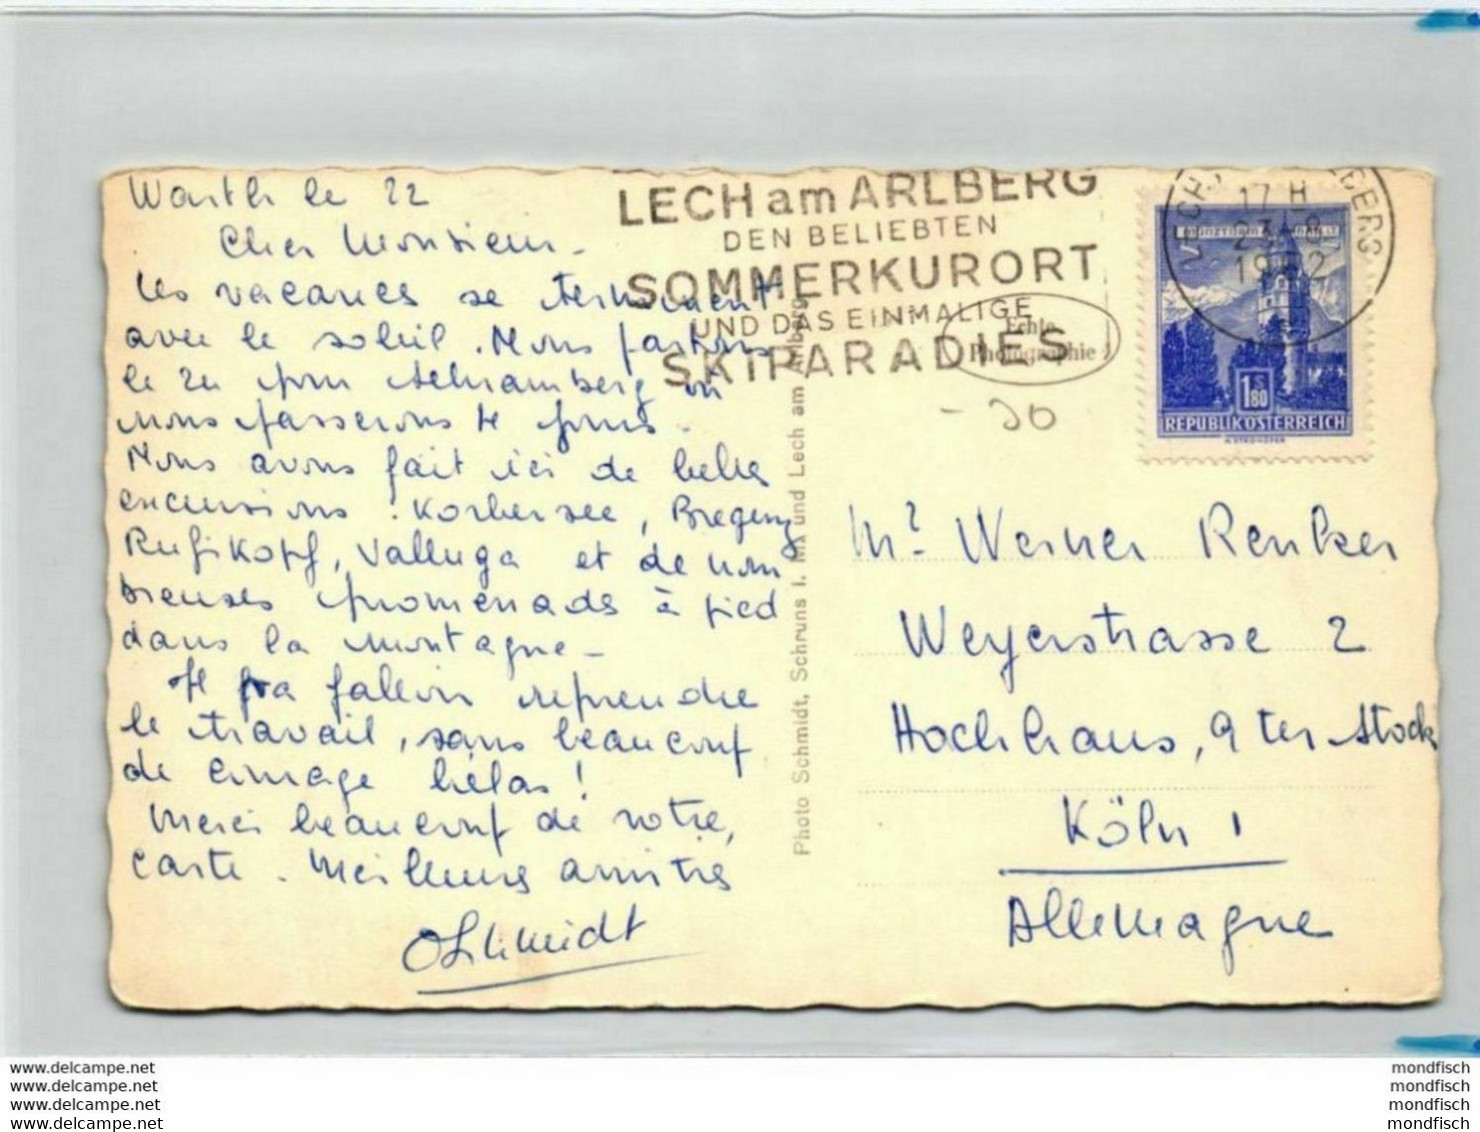 Warth le 22
Cher Monsieur -
Les vacances se terminent
avec le soleil. Nous partons
le 24 pour Schramberg où
nous passerons 4 jours -
Nous avons fait ici de belles
excursions : Korbersee, Bregenz
Rufikopf, Valluga et de nom
breuses promenads à pied
dans la montagne -
Il fra falloir reprendre
le travail, sans beaucoup
de courage hélas !
Merci beaucoup de votre,
carte. Meilleures amitiés
Schmidt
Photo Schmidt, Schruns i. M. und Lech am Arlberg
LECH am ARLBERG
DEN BELIEBTEN
SOMMERKURORT
UND DAS EINMALIGE
SKIPARADIES
Echte
Photographie
- 30
17 H
23.-8.
1962
1 S 80
REPUBLIK ÖSTERREICH
Mr Werner Renker
Weyerstrasse 2
Hochhaus, 9 ter Stock
Köln 1
Allemagne
www.delcampe.net
www.delcampe.net
www.delcampe.net
www.delcampe.net
mondfisch
mondfisch
mondfisch
mondfisch